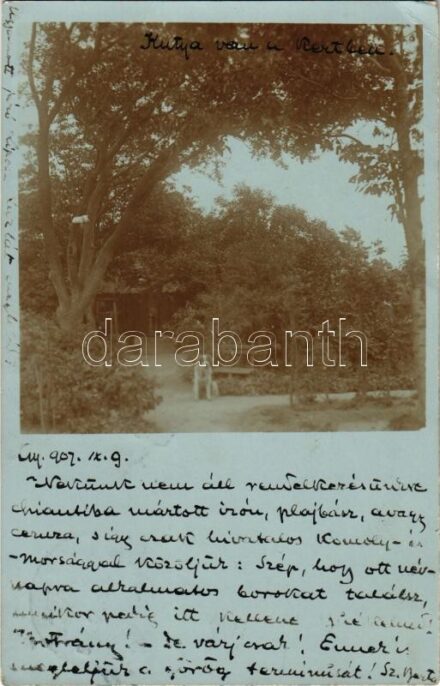 Kutya van a Kertben.
darabanth
907. IX. 9.
Nekünk nem áll rendelkezésünkre
chiantiba mártott irón, plajbász, avagy
ceruza, s így csak hivatalos Komoly- és
-morsággal közöljük: Szép, hogy ott név-
napra alkalmatos borokat találsz,
amikor pedig itt kellene
Botrány! - De várj csak! Ennek is
megleljük a görög terminusát! Sz. Bert